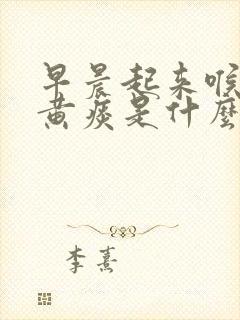 早晨起来喉
黄痰是什麼
李熹